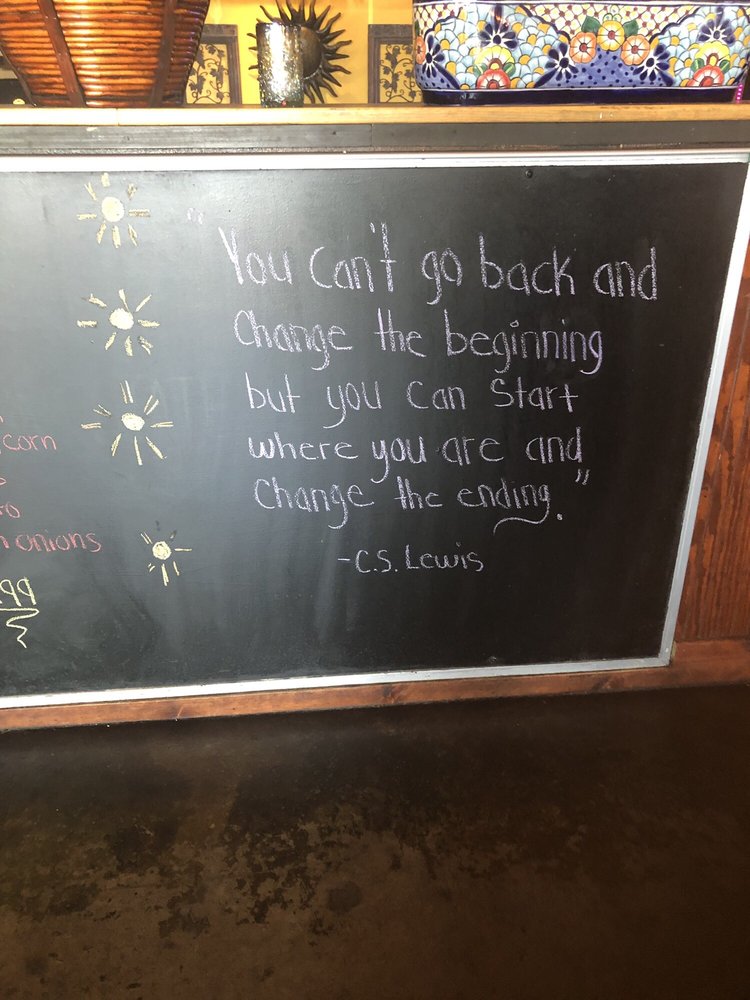 "You can't go back and
change the beginning
but you can start
where you are and
change the ending."
-C.S. Lewis
corn
onions